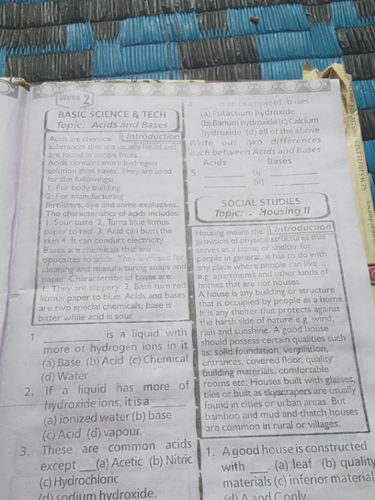 WEEK 2
BASIC SCIENCE & TECH
Topic: Acids and Bases
Introduction
Acids are chemical
substances that are usually liquid and
are found in unripe fruits.
Acids contains more hydrogen
solution than bases. They are used
for the followings:
1. For body building
2. For manufacturing
fertilizers, dye and some explosives.
The characteristics of acids includes:
1. Sour taste 2. Turns blue litmus
paper to red 3. Acid can burn the
skin 4. It can conduct electricity.
Bases are chemicals that are
opposites to acids. They are used for
cleaning and manufacturing soaps and
paper. Characteristic of bases are:
1. They are slippery 2. Base turn red
litmus paper to blue. Acids and bases
are two special chemicals; base is
bitter while acid is sour.
1. ________ is a liquid with
more of hydrogen ions in it
(a) Base (b) Acid (c) Chemical
(d) Water
2. If a liquid has more of
hydroxide ions, it is a ____
(a) ionized water (b) base
(c) Acid (d) vapour.
3. These are common acids
except ___ (a) Acetic (b) Nitric
(c) Hydrochloric
(d) sodium hydroxide.
4. is an example of bases
(a) Potassium hydroxide
(b) Barium hydroxide (c) Calcium
hydroxide (d) all of the above
Write out two differences
each between Acids and Bases
Acids Bases
5. ______ (i) ______
______ (ii) ______
SOCIAL STUDIES
Topic: - Housing II
Introduction
Housing means the
provision of physical structures that
serves as a home or shelter to
people in general. it has to do with
any place where people can live
e.g. apartments and other kinds of
homes that are not houses.
A house is any building or structure
that is occupied by people as a home.
It is any shelter that protects against
the harsh side of nature e.g. wind,
rain and sunshine. A good house
should possess certain qualities such
as: solid foundation, ventilation,
entrances, covered floor, quality
building materials, comfortable
rooms etc. Houses built with glasses,
tiles or built as skyscrapers are usually
found in cities or urban areas. But
bamboo and mud and thatch houses
are common in rural or villages.
1. A good house is constructed
with ___ (a) leaf (b) quality
materials (c) inferior material
(d) A and C only